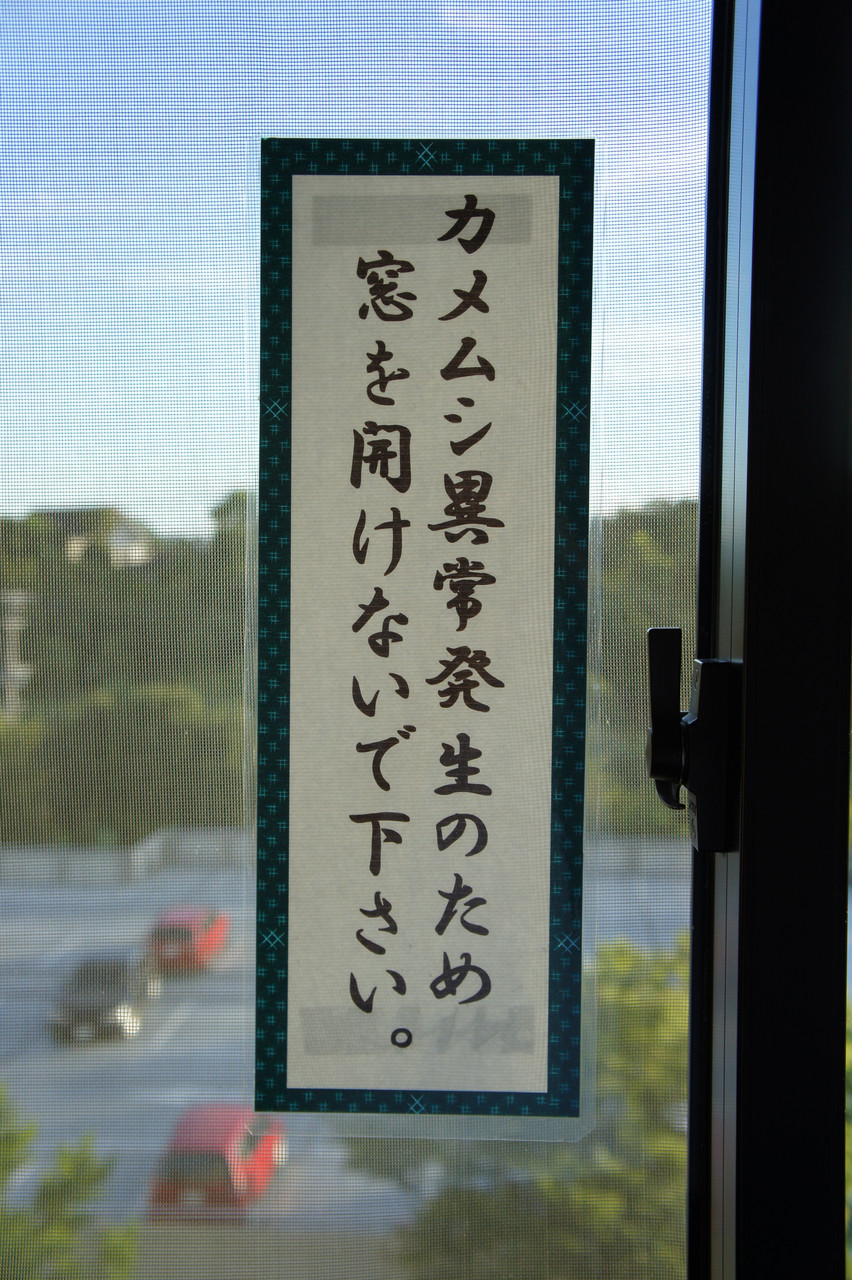 カメムシ異常発生のため
窓を開けないで下さい。